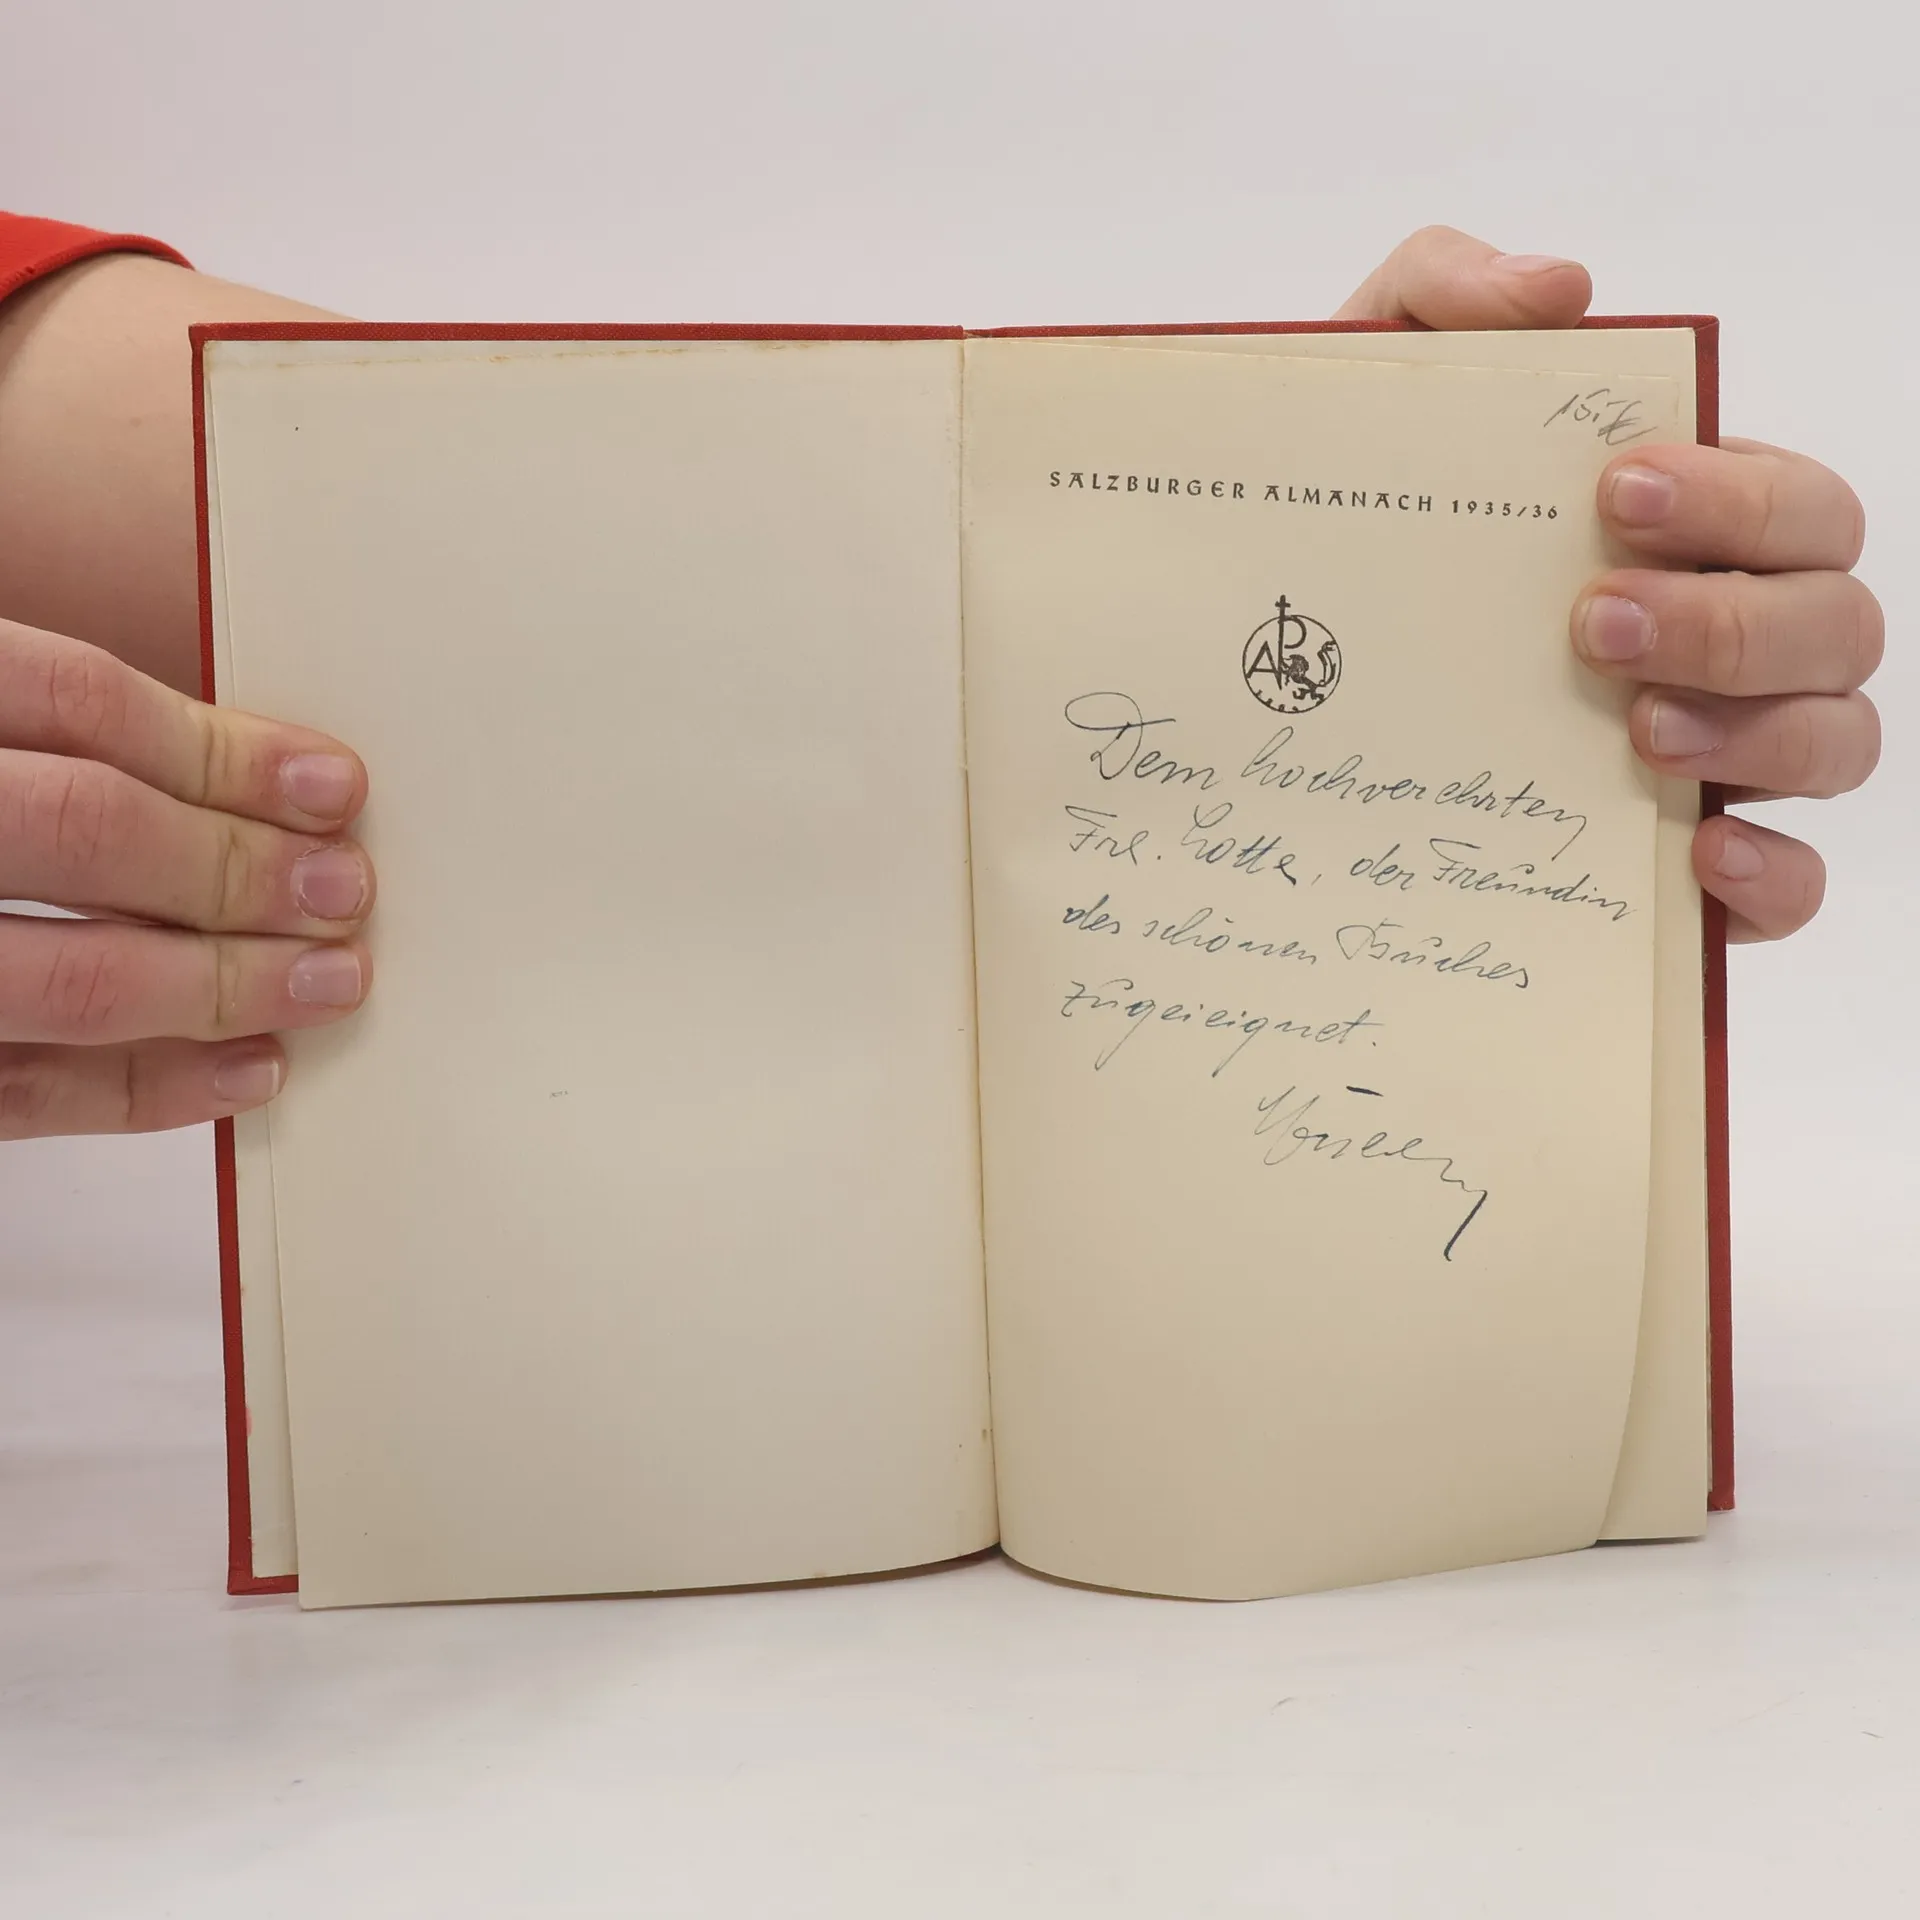 15,-
SALZBURGER ALMANACH 1935/36
APS
Dem hochverehrten
Frl. Lotte, der Freundin
des schönen Buches
zugeeignet.